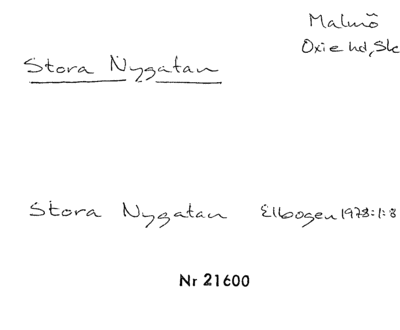 Malmö
Oxie hd, Sk
Stora Nygatan
Stora Nygatan Elbogen 1978:1:8
Nr 21600